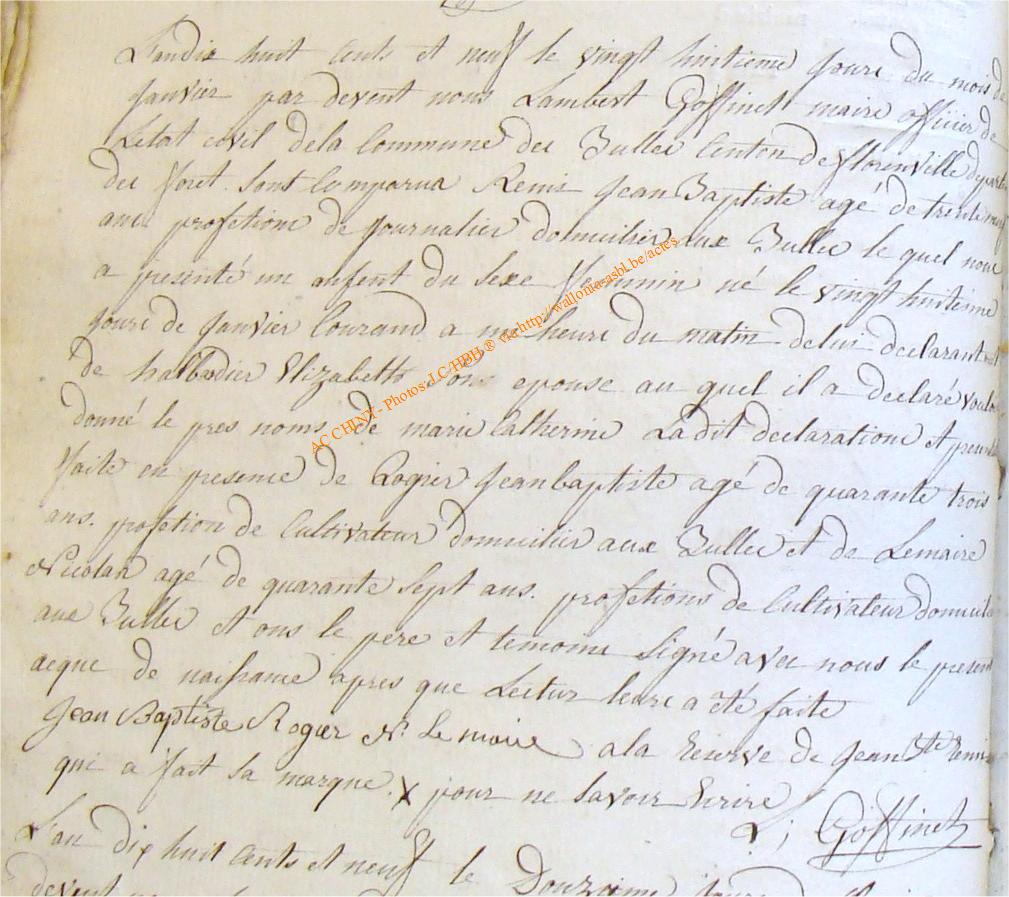 L'andix huit cents et neuf le vingt huitieme jours du mois de
janvier par devent nous Lambert Goffinet maire officier de
Letat civil dela Commune des Bulles Canton de florenville departe
des foret. Sont Comparua Remis jean Baptiste agé de trente neuf
ans profetions de journalier domicilier aux Bulles le quel nous
a presenté un enfent du sexe femminin né le vingt huitieme
jours de janvier Courand a heure du matin delui declarant et
de halbadier Elizabette sons epouse au quel il a declaré voulo
donné le pres noms de marie Catherine Ladit declarations et
faite en presence de Rogier jean baptiste agé de quarante trois
ans. profetion de Cultivateur domicilier aux Bulles et de Lemaire
Nicolas agé de quarante sept ans. profetions de Cultivateur domicilie
aux Bulles et ons le pere et temoins Signé avec nous le present
acque de naissance apres que Lectur leurs a été faite
Jean Baptiste Rogier N. Le maire ala reserve de jean Bte Remis
qui a fait sa marque X pour ne savoir Ecrire
L; Goffinet
L'an dix huit cents et neuf le Douzaime jours
devent
ACCHINY - Photos J.C/HBH ® via http://wallonia-asbl.be/actes